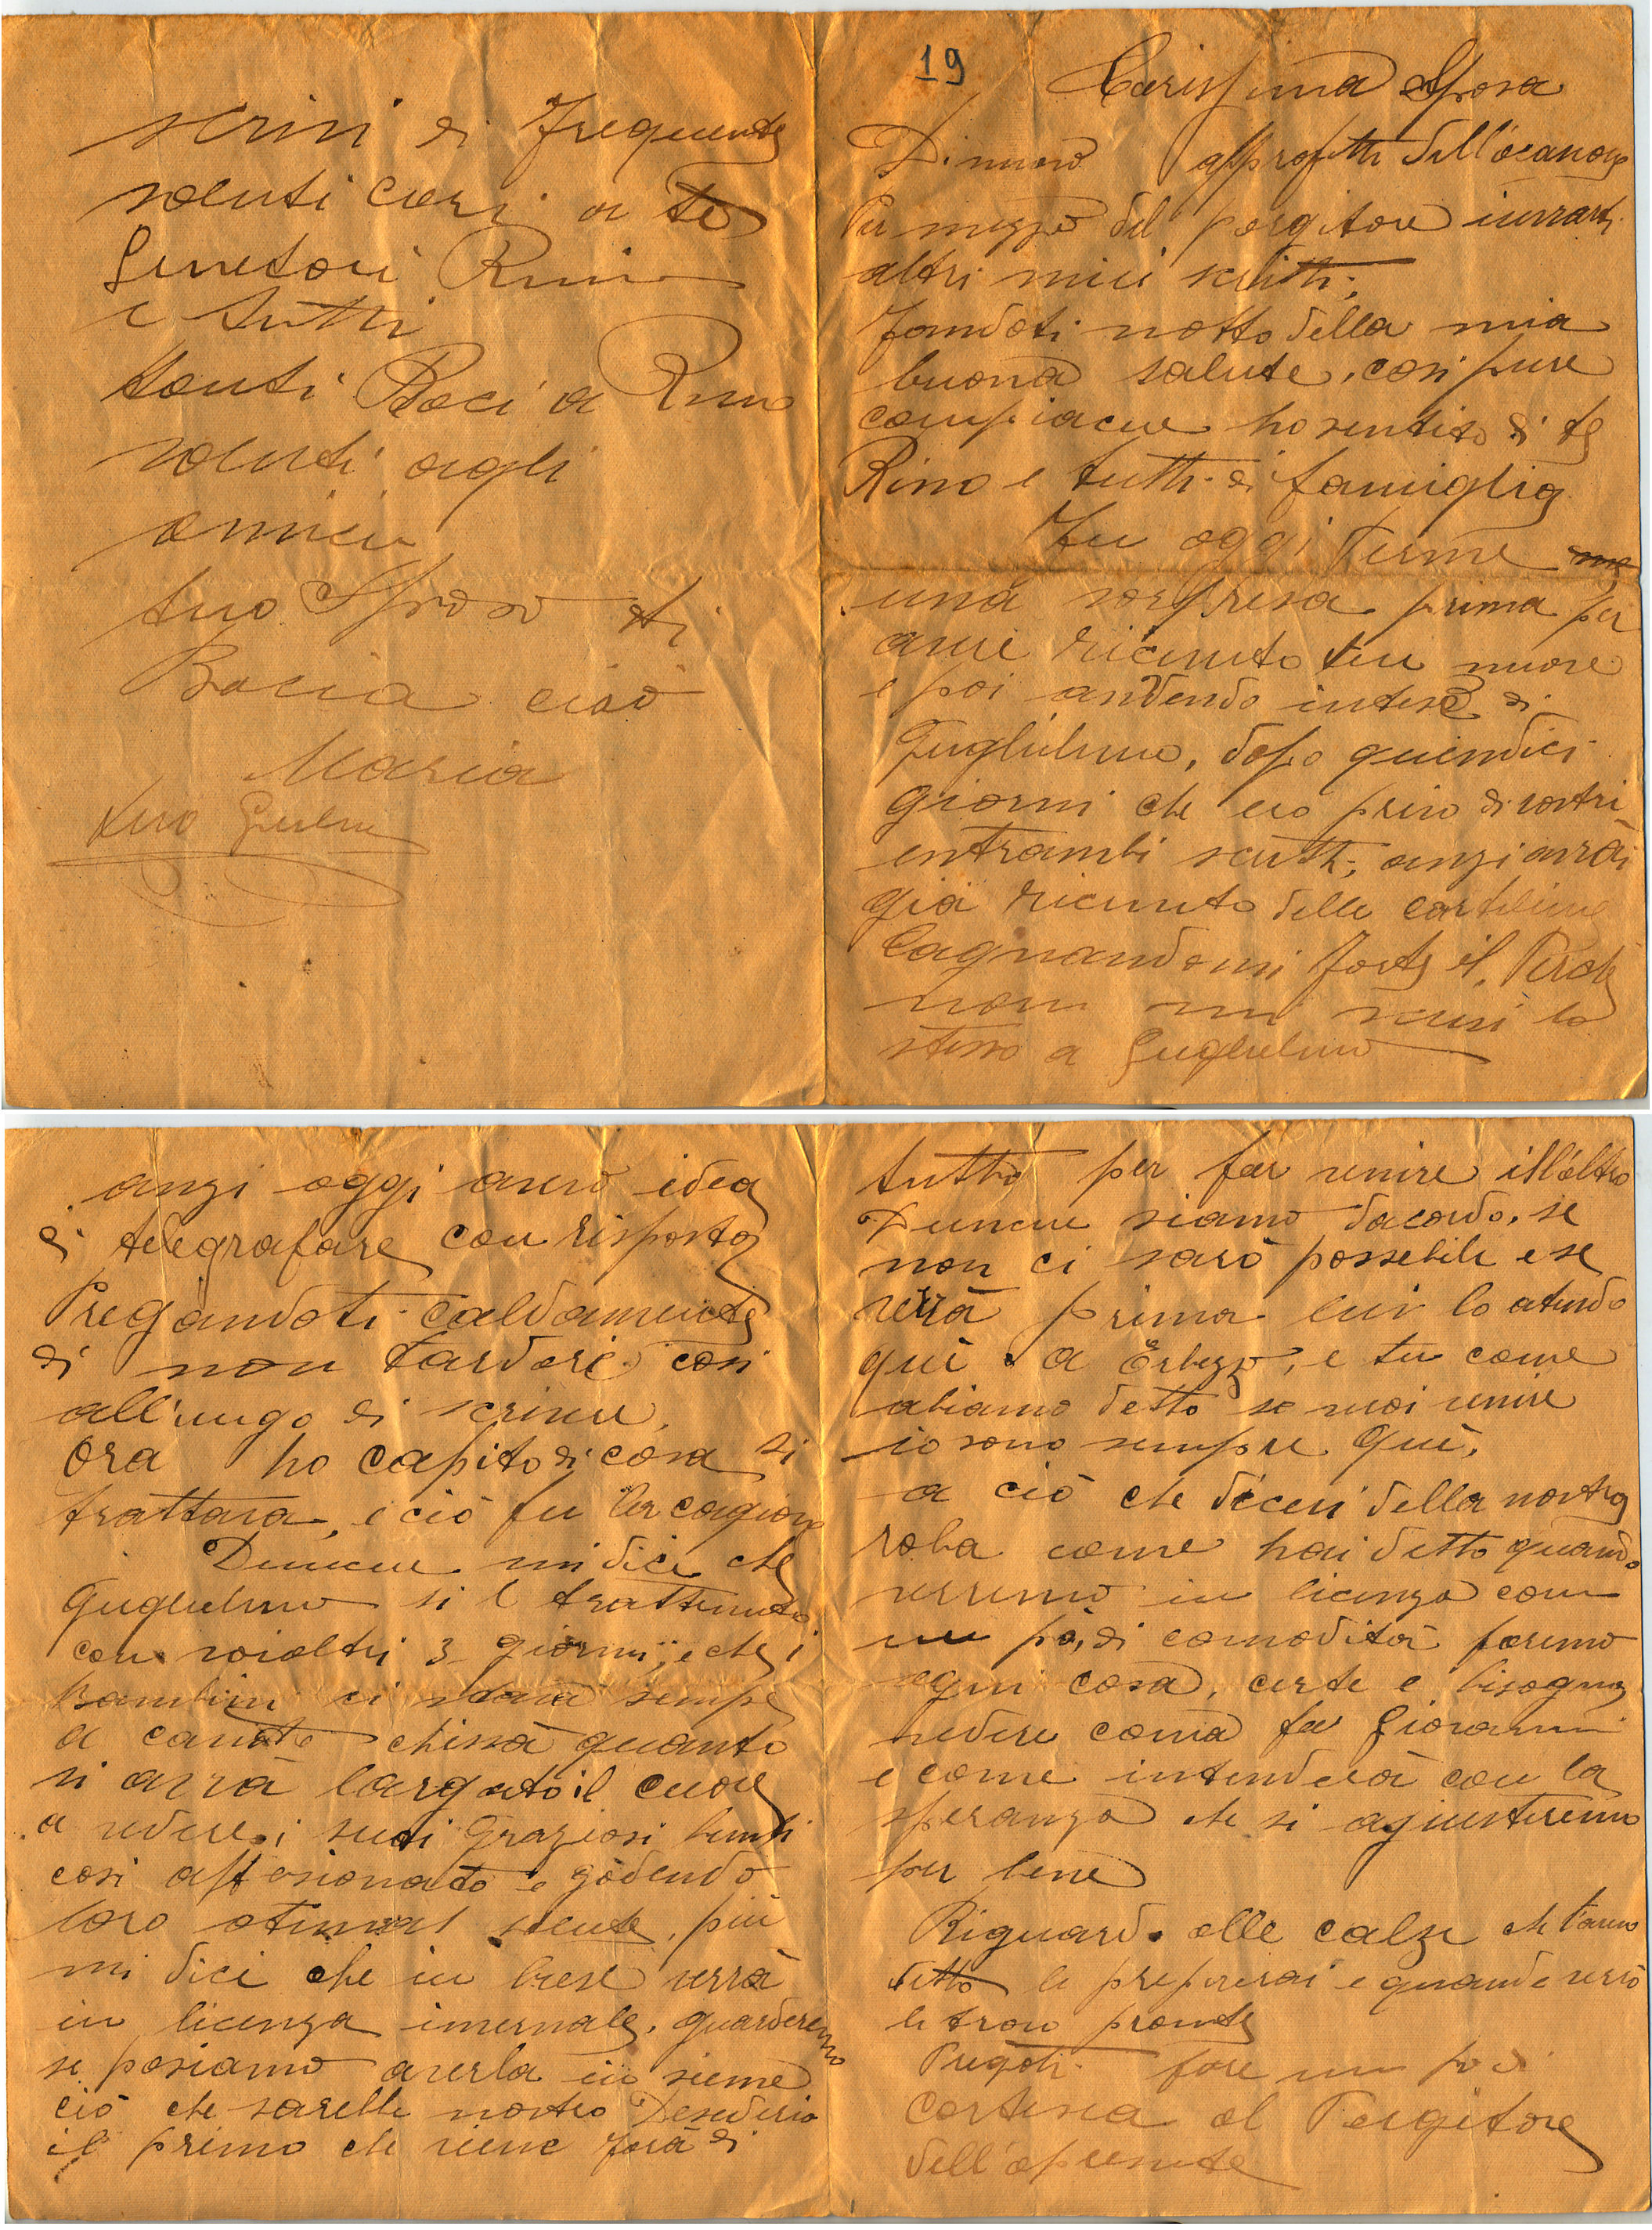 19
Carissima Sposa
Di nuovo approfitti dell'ocanone
Per mezzo del porgitore inviarti
altri miei scritti;
Fandoti notto della mia
buona salute, cosi pure
compiacue ho sentito di te
Rino e tutti di famiglia
Fu oggi Perme
una sorpresa prima per
avere ricevuto tue nuove
e poi andendo inteso di
Guglielmo, dopo quindici
giorni che ero privo di vostri
entrambi scritti; anzi avrai
già ricevuto delle cartoline
lagnandomi forte il Perche
non mi scrivi lo
stesso a Guglielmo
anzi oggi avevo idea
di telegrafare con risposta
Pregandoti caldamente
di non tardare cosi
allungo di scrivere,
Ora ho capito di cosa si
trattava, e ciò fu la cagione
Duncue mi dici che
Guglielmo si è trattenuto
con voialtri 3 giorni; e che i
Bambini ci stava sempre
a canto chissà quanto
si avrà largato il cuore
a vedere i suoi graziosi bimbi
cosi affesionato e godendo
loro otima salute, più
mi dici che in breve verrà
in licenza invernale, guarderemo
se posiamo averla in sieme
ciò che sarebbe nostro Desederio
il primo che viene farà di
tutto per far venire ill'altro
Duncue siamo dacordo, se
non ci sarà possebile e se
verrà prima lui lo atendo
quì a Erbezzo, e tu come
abiamo detto se vuoi venire
io sono sempre quì,
a ciò che dicevi della nostra
roba come hai detto quando
verremo in licenza con
un pò, di comodità faremo
ogni cosa, certe e bisogna
vedere coma fa Giovanni
e come intenderà con la
speranza che si agiusteremo
per bene
Riguardo alle calze che t'avevo
detto le preparerai e quande verrò
le trovo pronte
Pregoti fare un po di
cortesia al Porgitore
dell'apresente
scrivi di frequente
saluti cari a te
Genetori Rino
e tutti
tanti Baci a Rino
saluti agli
amici
tuo Sposo ti
Bacia ciao
Maria